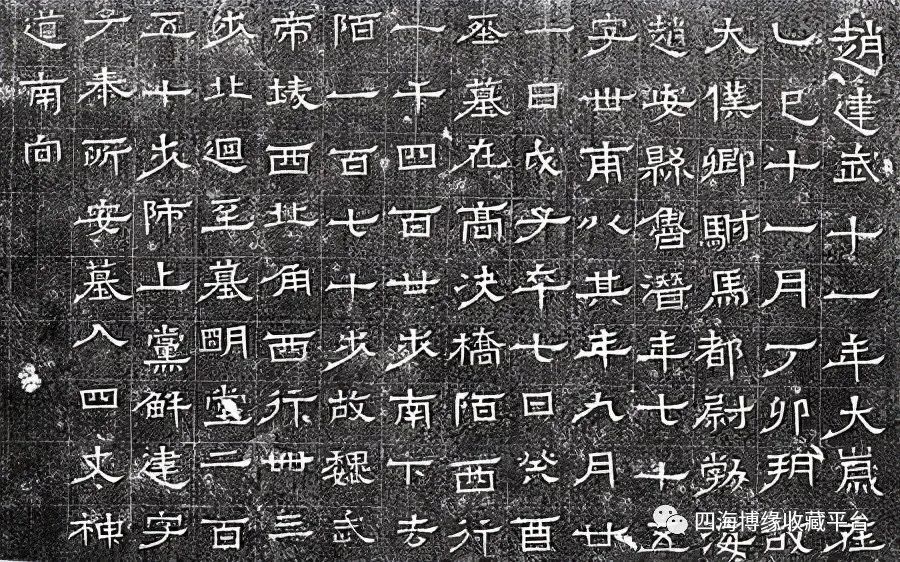 趙建武十一年大歲在
乙巳十一月丁卯朔故
大僕卿駙馬都尉勃海
趙安縣魯潛年七十五
字世甫以其年九月廿
一日戊子卒七日癸酉
葬墓在高決橋陌西行
一千四百廿步南下去
陌一百七十步故魏武
帝陵西北角西行卌三
步北迴至墓明堂二百
五十步師上黨解建字
子奉所安墓入四丈神
道南向
四海博缘收藏平台